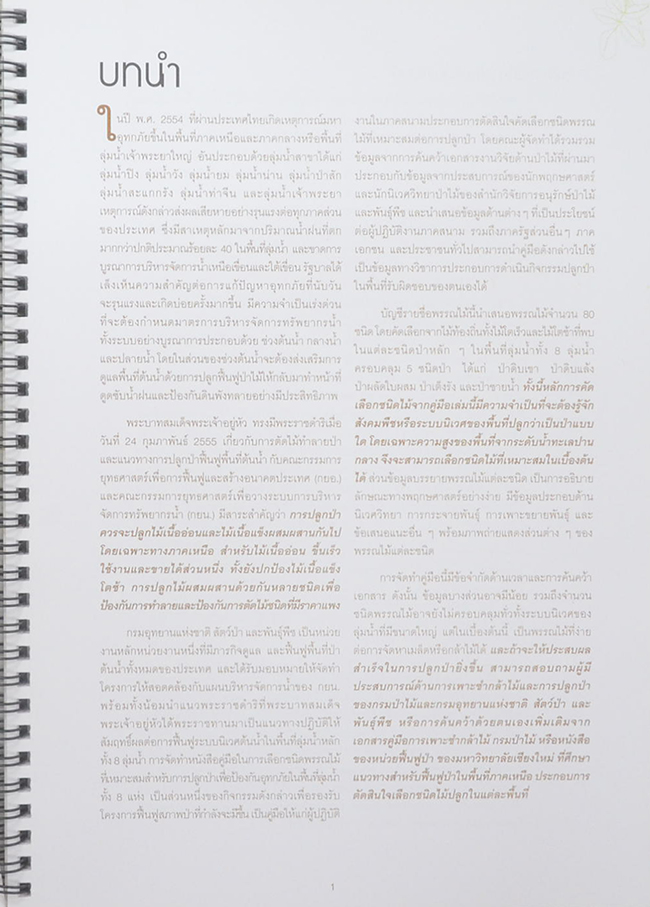 บทนำ
ในปี พ.ศ. 2554 ที่ผ่านประเทศไทยเกิดเหตุการณ์มหา
อุทกภัยขึ้นในพื้นที่ภาคเหนือและภาคกลางหรือพื้นที่
ลุ่มน้ำเจ้าพระยาใหญ่ อันประกอบด้วยลุ่มน้ำสาขาได้แก่
ลุ่มน้ำปิง ลุ่มน้ำวัง ลุ่มน้ำยม ลุ่มน้ำน่าน ลุ่มน้ำป่าสัก
ลุ่มน้ำสะแกกรัง ลุ่มน้ำท่าจีน และลุ่มน้ำเจ้าพระยา
เหตุการณ์ดังกล่าวส่งผลเสียหายอย่างรุนแรงต่อทุกภาคส่วน
ของประเทศ ซึ่งมีสาเหตุหลักมาจากปริมาณน้ำฝนที่ตก
มากกว่าปกติประมาณร้อยละ 40 ในพื้นที่ลุ่มน้ำ และขาดการ
บูรณาการบริหารจัดการน้ำเหนือเขื่อนและใต้เขื่อน รัฐบาลได้
เล็งเห็นความสำคัญต่อการแก้ปัญหาอุทกภัยที่นับวัน
จะรุนแรงและเกิดบ่อยครั้งมากขึ้น มีความจำเป็นเร่งด่วน
ที่จะต้องกำหนดมาตรการบริหารจัดการทรัพยากรน้ำ
ทั้งระบบอย่างบูรณาการประกอบด้วย ช่วงต้นน้ำ กลางน้ำ
และปลายน้ำ โดยในส่วนของช่วงต้นน้ำจะต้องส่งเสริมการ
ดูแลพื้นที่ต้นน้ำด้วยการปลูกฟื้นฟูป่าไม้ให้กลับมาทำหน้าที่
ดูดซับน้ำฝนและป้องกันดินพังทลายอย่างมีประสิทธิภาพ
พระบาทสมเด็จพระเจ้าอยู่หัว ทรงมีพระราชดำริเมื่อ
วันที่ 24 กุมภาพันธ์ 2555 เกี่ยวกับการตัดไม้ทำลายป่า
และแนวทางการปลูกป่าฟื้นฟูพื้นที่ต้นน้ำ กับคณะกรรมการ
ยุทธศาสตร์เพื่อการฟื้นฟูและสร้างอนาคตประเทศ (กยอ.)
และคณะกรรมการยุทธศาสตร์เพื่อวางระบบการบริหาร
จัดการทรัพยากรน้ำ (กยน.) มีสาระสำคัญว่า การปลูกป่า
ควรจะปลูกไม้เนื้ออ่อนและไม้เนื้อแข็งผสมผสานกันไป
โดยเฉพาะทางภาคเหนือ สำหรับไม้เนื้ออ่อน ขึ้นเร็ว
ใช้งานและขายได้ส่วนหนึ่ง ทั้งยังปกป้องไม้เนื้อแข็ง
โตช้า การปลูกไม้ผสมผสานด้วยกันหลายชนิดเพื่อ
ป้องกันการทำลายและป้องกันการตัดไม้ชนิดที่มีราคาแพง
กรมอุทยานแห่งชาติ สัตว์ป่า และพันธุ์พืช เป็นหน่วย
งานหลักหน่วยงานหนึ่งที่มีภารกิจดูแล และฟื้นฟูพื้นที่ป่า
ต้นน้ำทั้งหมดของประเทศ และได้รับมอบหมายให้จัดทำ
โครงการให้สอดคล้องกับแผนบริหารจัดการน้ำของ กยน.
พร้อมทั้งน้อมนำแนวพระราชดำริที่พระบาทสมเด็จ
พระเจ้าอยู่หัวได้พระราชทานมาเป็นแนวทางปฏิบัติให้
สัมฤทธิ์ผลต่อการฟื้นฟูระบบนิเวศต้นน้ำในพื้นที่ลุ่มน้ำหลัก
ทั้ง 8 ลุ่มน้ำ การจัดทำหนังสือคู่มือในการเลือกชนิดพรรณไม้
ที่เหมาะสมสำหรับการปลูกป่าเพื่อป้องกันอุทกภัยในพื้นที่ลุ่มน้ำ
ทั้ง 8 แห่ง เป็นส่วนหนึ่งของกิจกรรมดังกล่าวเพื่อรองรับ
โครงการฟื้นฟูสภาพป่าที่กำลังจะมีขึ้น เป็นคู่มือให้แก่ผู้ปฏิบัติ
งานในภาคสนามประกอบการตัดสินใจคัดเลือกชนิดพรรณ
ไม้ที่เหมาะสมต่อการปลูกป่า โดยคณะผู้จัดทำได้รวบรวม
ข้อมูลจากการค้นคว้าเอกสารงานวิจัยด้านป่าไม้ที่ผ่านมา
ประกอบกับข้อมูลจากประสบการณ์ของนักพฤกษศาสตร์
และนักนิเวศวิทยาป่าไม้ของสำนักวิจัยการอนุรักษ์ป่าไม้
และพันธุ์พืช และนำเสนอข้อมูลด้านต่างๆ ที่เป็นประโยชน์
ต่อผู้ปฏิบัติงานภาคสนาม รวมถึงภาครัฐส่วนอื่นๆ ภาค
เอกชน และประชาชนทั่วไปสามารถนำคู่มือดังกล่าวไปใช้
เป็นข้อมูลทางวิชาการประกอบการดำเนินกิจกรรมปลูกป่า
ในพื้นที่รับผิดชอบของตนเองได้
บัญชีรายชื่อพรรณไม้นี้นำเสนอพรรณไม้จำนวน 80
ชนิด โดยคัดเลือกจากไม้ท้องถิ่นทั้งไม้โตเร็วและไม้โตช้าที่พบ
ในแต่ละชนิดป่าหลัก ๆ ในพื้นที่ลุ่มน้ำทั้ง 8 ลุ่มน้ำ
ครอบคลุม 5 ชนิดป่า ได้แก่ ป่าดิบเขา ป่าดิบแล้ง
ป่าผลัดใบผสม ป่าเต็งรัง และป่าชายน้ำ ทั้งนี้หลักการคัด
เลือกชนิดไม้จากคู่มือเล่มนี้มีความจำเป็นที่จะต้องรู้จัก
สังคมพืชหรือระบบนิเวศของพื้นที่ปลูกว่าเป็นป่าแบบ
ใด โดยเฉพาะความสูงของพื้นที่จากระดับน้ำทะเลปาน
กลาง จึงจะสามารถเลือกชนิดไม้ที่เหมาะสมในเบื้องต้น
ได้ ส่วนข้อมูลบรรยายพรรณไม้แต่ละชนิด เป็นการอธิบาย
ลักษณะทางพฤกษศาสตร์อย่างง่าย มีข้อมูลประกอบด้าน
นิเวศวิทยา การกระจายพันธุ์ การเพาะขยายพันธุ์ และ
ข้อเสนอแนะอื่น ๆ พร้อมภาพถ่ายแสดงส่วนต่าง ๆ ของ
พรรณไม้แต่ละชนิด
การจัดทำคู่มือนี้มีข้อจำกัดด้านเวลาและการค้นคว้า
เอกสาร ดังนั้น ข้อมูลบางส่วนอาจมีน้อย รวมถึงจำนวน
ชนิดพรรณไม้อาจยังไม่ครอบคลุมทั่วทั้งระบบนิเวศของ
ลุ่มน้ำที่มีขนาดใหญ่ แต่ในเบื้องต้นนี้ เป็นพรรณไม้ที่ง่าย
ต่อการจัดหาเมล็ดหรือกล้าไม้ได้ และถ้าจะให้ประสบผล
สำเร็จในการปลูกป่ายิ่งขึ้น สามารถสอบถามผู้มี
ประสบการณ์ด้านการเพาะชำกล้าไม้และการปลูกป่า
ของกรมป่าไม้และกรมอุทยานแห่งชาติ สัตว์ป่า และ
พันธุ์พืช หรือการค้นคว้าด้วยตนเองเพิ่มเติมจาก
เอกสารคู่มือการเพาะชำกล้าไม้ กรมป่าไม้ หรือหนังสือ
ของหน่วยฟื้นฟูป่า ของมหาวิทยาลัยเชียงใหม่ ที่ศึกษา
แนวทางสำหรับฟื้นฟูป่าในพื้นที่ภาคเหนือ ประกอบการ
ตัดสินใจเลือกชนิดไม้ปลูกในแต่ละพื้นที่
1